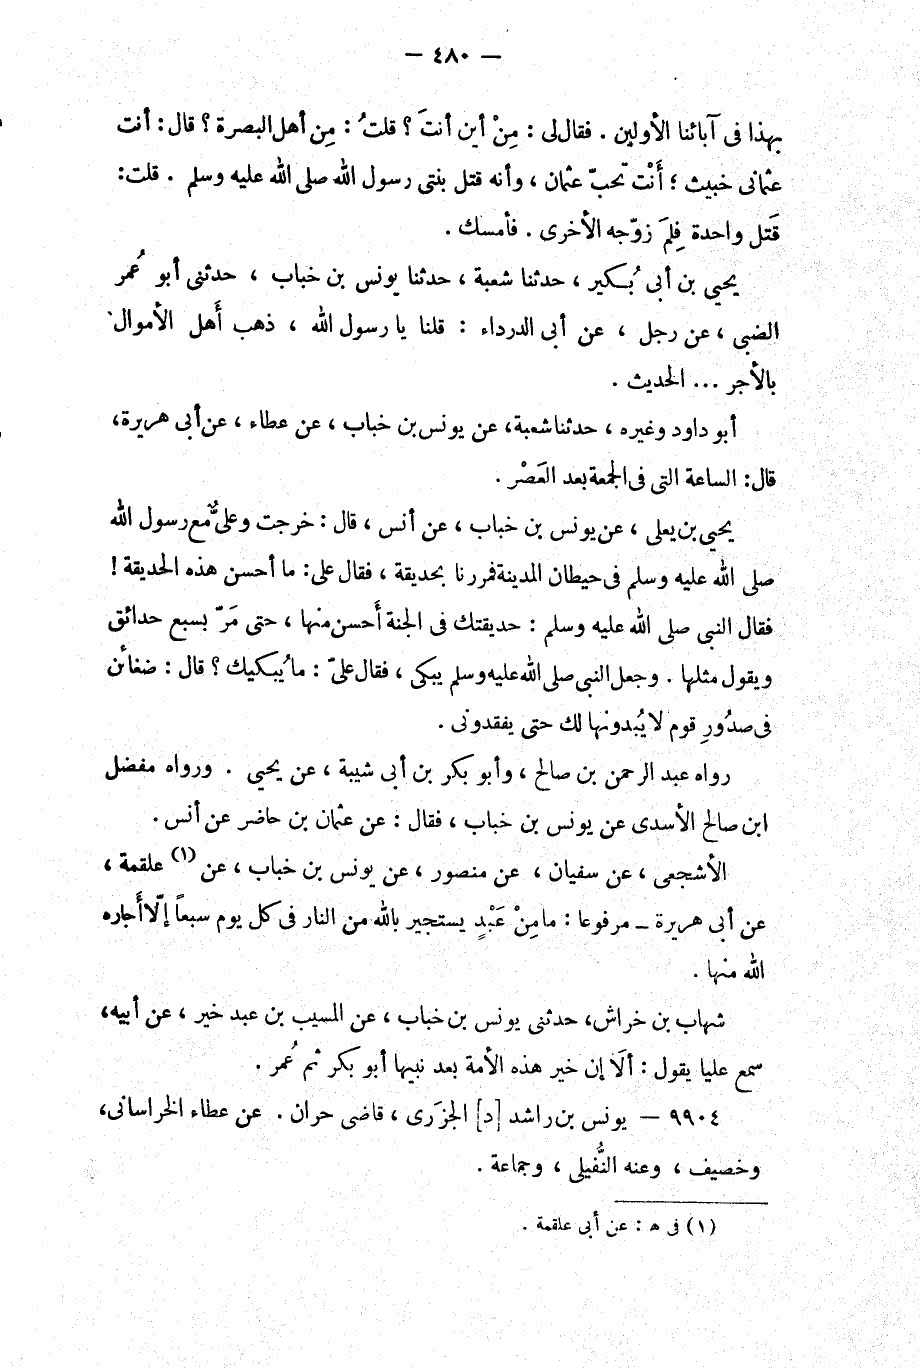 — ٤٨٠ —
بهذا فى آبائنا الأولين . فقال لى : مِنْ أين أنتَ ؟ قلتُ : مِن أهل البصرة ؟ قال : أنت
عثمانى خبيث ؛ أَنْت تحبّ عثمان ، وأنه قتل بنتى رسول الله صلى الله عليه وسلم . قلت :
قَتل واحدة فِلمَ زوّجه الأخرى . فأمسك .
يحيى بن أبى بُكير ، حدثنا شعبة ، حدثنا يونس بن خباب ، حدثنى أبو عُمر
الضبى ، عن رجل ، عن أبى الدرداء : قلنا يا رسول الله ، ذهب أَهل الأموال
بالأجر ... الحديث .
أبو داود وغيره ، حدثنا شعبة ، عن يونس بن خباب ، عن عطاء ، عن أبى هريرة ،
قال : الساعة التى فى الجمعة بعد العَصْر .
يحيى بن يعلى ، عن يونس بن خباب ، عن أنس ، قال : خرجت وعلىٌّ مع رسول الله
صلى الله عليه وسلم فى حيطان المدينة فمررنا بحديقة ، فقال على : ما أحسن هذه الحديقة !
فقال النبى صلى الله عليه وسلم : حديقتك فى الجنة أَحسن منها ، حتى مَرّ بسبع حدائق
ويقول مثلها . وجعل النبى صلى الله عليه وسلم يبكى ، فقال علىّ : ما يُبكيك ؟ قال : ضغائن
فى صدُورِ قوم لا يُبدونها لك حتى يفقدونى .
رواه عبد الرحمن بن صالح ، وأبو بكر بن أبى شيبة ، عن يحيى . ورواه مفضل
ابن صالح الأسدى عن يونس بن خباب ، فقال : عن عثمان بن حاضر عن أنس .
الأشجعى ، عن سفيان ، عن منصور ، عن يونس بن خباب ، عن (١) علقمة ،
عن أبى هريرة ـ مرفوعا : ما مِنْ عَبْدٍ يستجير بالله من النار فى كل يوم سبعاً إلّا أَجاره
الله منها .
شهاب بن خراش ، حدثنى يونس بن خباب ، عن المسيب بن عبد خير ، عن أبيه ،
سمع عليا يقول : ألَا إن خير هذه الأمة بعد نبيها أبو بكر ثم عُمر .
٩٩٠٤ — يونس بن راشد [د] الجزَرى ، قاضى حران . عن عطاء الخراسانى ،
وخصيف ، وعنه النُّفيلى ، وجماعة .
(١) فى ه : عن أبى علقمة .